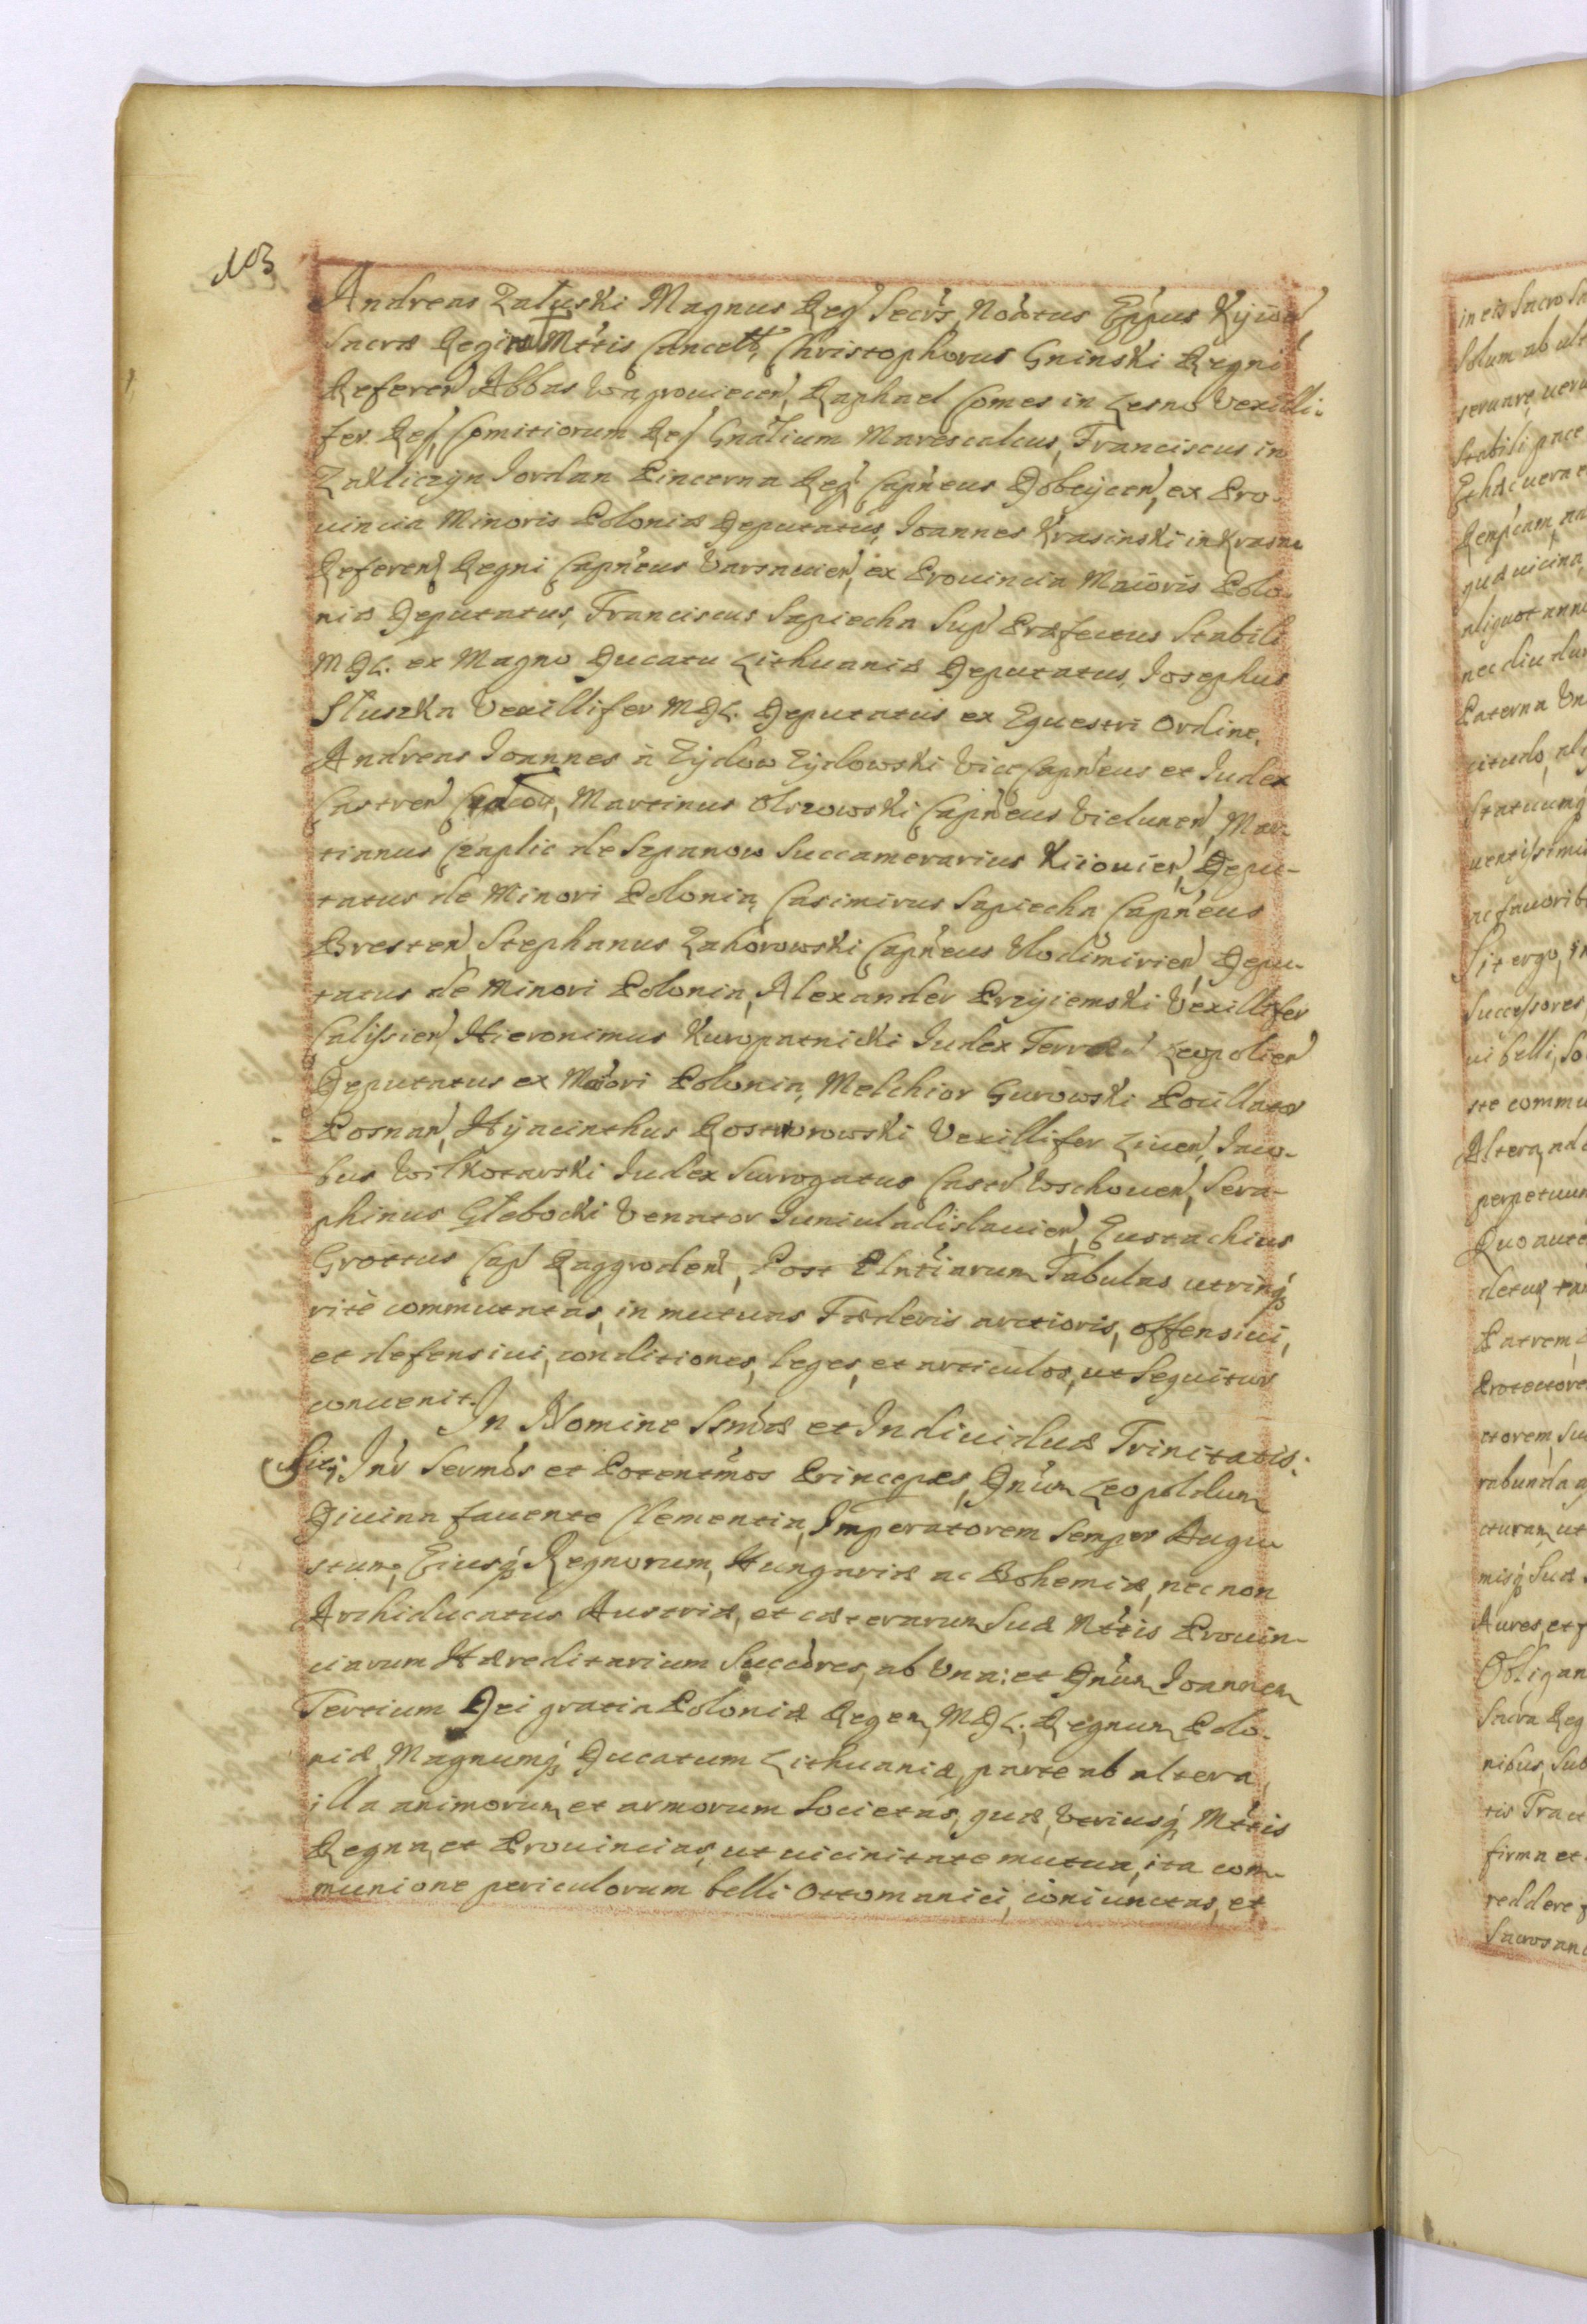 NB
Andreas Załuski Magnus Reg Secrs, Noatus Eppus Kyiou
Sacræ Regiæ Mttis Cancell, Christophorus Gninski Regni
Referen Abbas Wągrouiecen, Raphael Comes in Lesno Vexilli-
fer Reg, Comitiorum Reg Gnalium Marescalcus, Franciscus in
Zakliczyn Iordan Pincerna Reg Capneus Dobcycen, ex Pro-
uincia Minoris Poloniæ Deputatus, Ioannes Krasinski in Krasne
Referen Regni Capneus Varsauien, ex Prouincia Maioris Polo-
niæ Deputatus, Franciscus Sapiecha Sup Præfectus Stabili
MDL. ex Magno Ducatu Lithuaniæ Deputatus, Iosephus
Słuszka Vexillifer MDL. Deputatus ex Equestri Ordine,
Andreas Ioannes à Zydow Zydowski Vice Capneus et Iudex
Castren Cracou, Martinus Olszowski Capneus Vielunen, Mar-
tianus Czaplic de Szpanow Succamerarius Kiiouien, Depu-
tatus de Minori Polonia, Casimirus Sapiecha Capneus
Bresten, Stephanus Zahorowski Capneus Vlodimirien, Depu-
tatus de Minori Polonia, Alexander Przyiemski Vexillifer
Calissien, Hieronimus Kuropatnicki Iudex Terræ Leopolien
Deputatus ex Maiori Polonia, Melchior Gurowski Pocillator
Posnan, Hyacinthus Rostworowski Vexillifer Liuen, Iaco-
bus Wilkotarski Iudex Surrogatus Castr Wschouen, Sera-
phinus Głebocki Venator Iuniuladislauien, Eustachius
Grottus Cap Raggroden, Post Plntiarum Tabulas utrinq
ritè commutatas, in mutuas Fæderis arctioris, offensiui,
et defensiui, conditiones, leges, et articulos, ut Sequitur
conuenit.
In Nomine Ssmæ et Indiuiduæ Trinitatis.
Sit, Inr Sermos et Potentmos Principes, Dnum Leopoldum
Diuina fauente Clementia, Imperatorem Semper Augu
stum, Eiusq Regnorum, Hungariæ ac Bohemiæ, nec non
Archiducatus Austriæ, et cæterarum Suæ Mttis Prouin-
ciarum Hæreditarium Succores, ab Vna: et Dnum Ioannem
Tertium Dei gratia Poloniæ Regem, MDL. Regnum Polo-
niæ, Magnumq Ducatum Lithuaniæ, parte ab altera,
illa animorum et armorum Societas, quæ, Vtriusq Mttis
Regna, et Prouincias, ut uicinitate mutua, ita com-
munione periculorum belli Ottomanici, coniunctas, et
in eis Sacro Sa
Solum ab alt
seruare, ueru
Stabili pace
Et hæc uera e
aliquot anni
nec diu
Paterna Vn
Statuumq
Sit ergo, in
Successores
ui belli, So
te commu
Altera, ad
perpetuum
Quo aute
Patrem,
Protectore
ctorem, Su
rabunda
cturam, ut
misq Suæ
Aures, et
Obligan
Sacra Reg
nibus, Sub
tis Tract
firma et
reddere
Sacrosanc